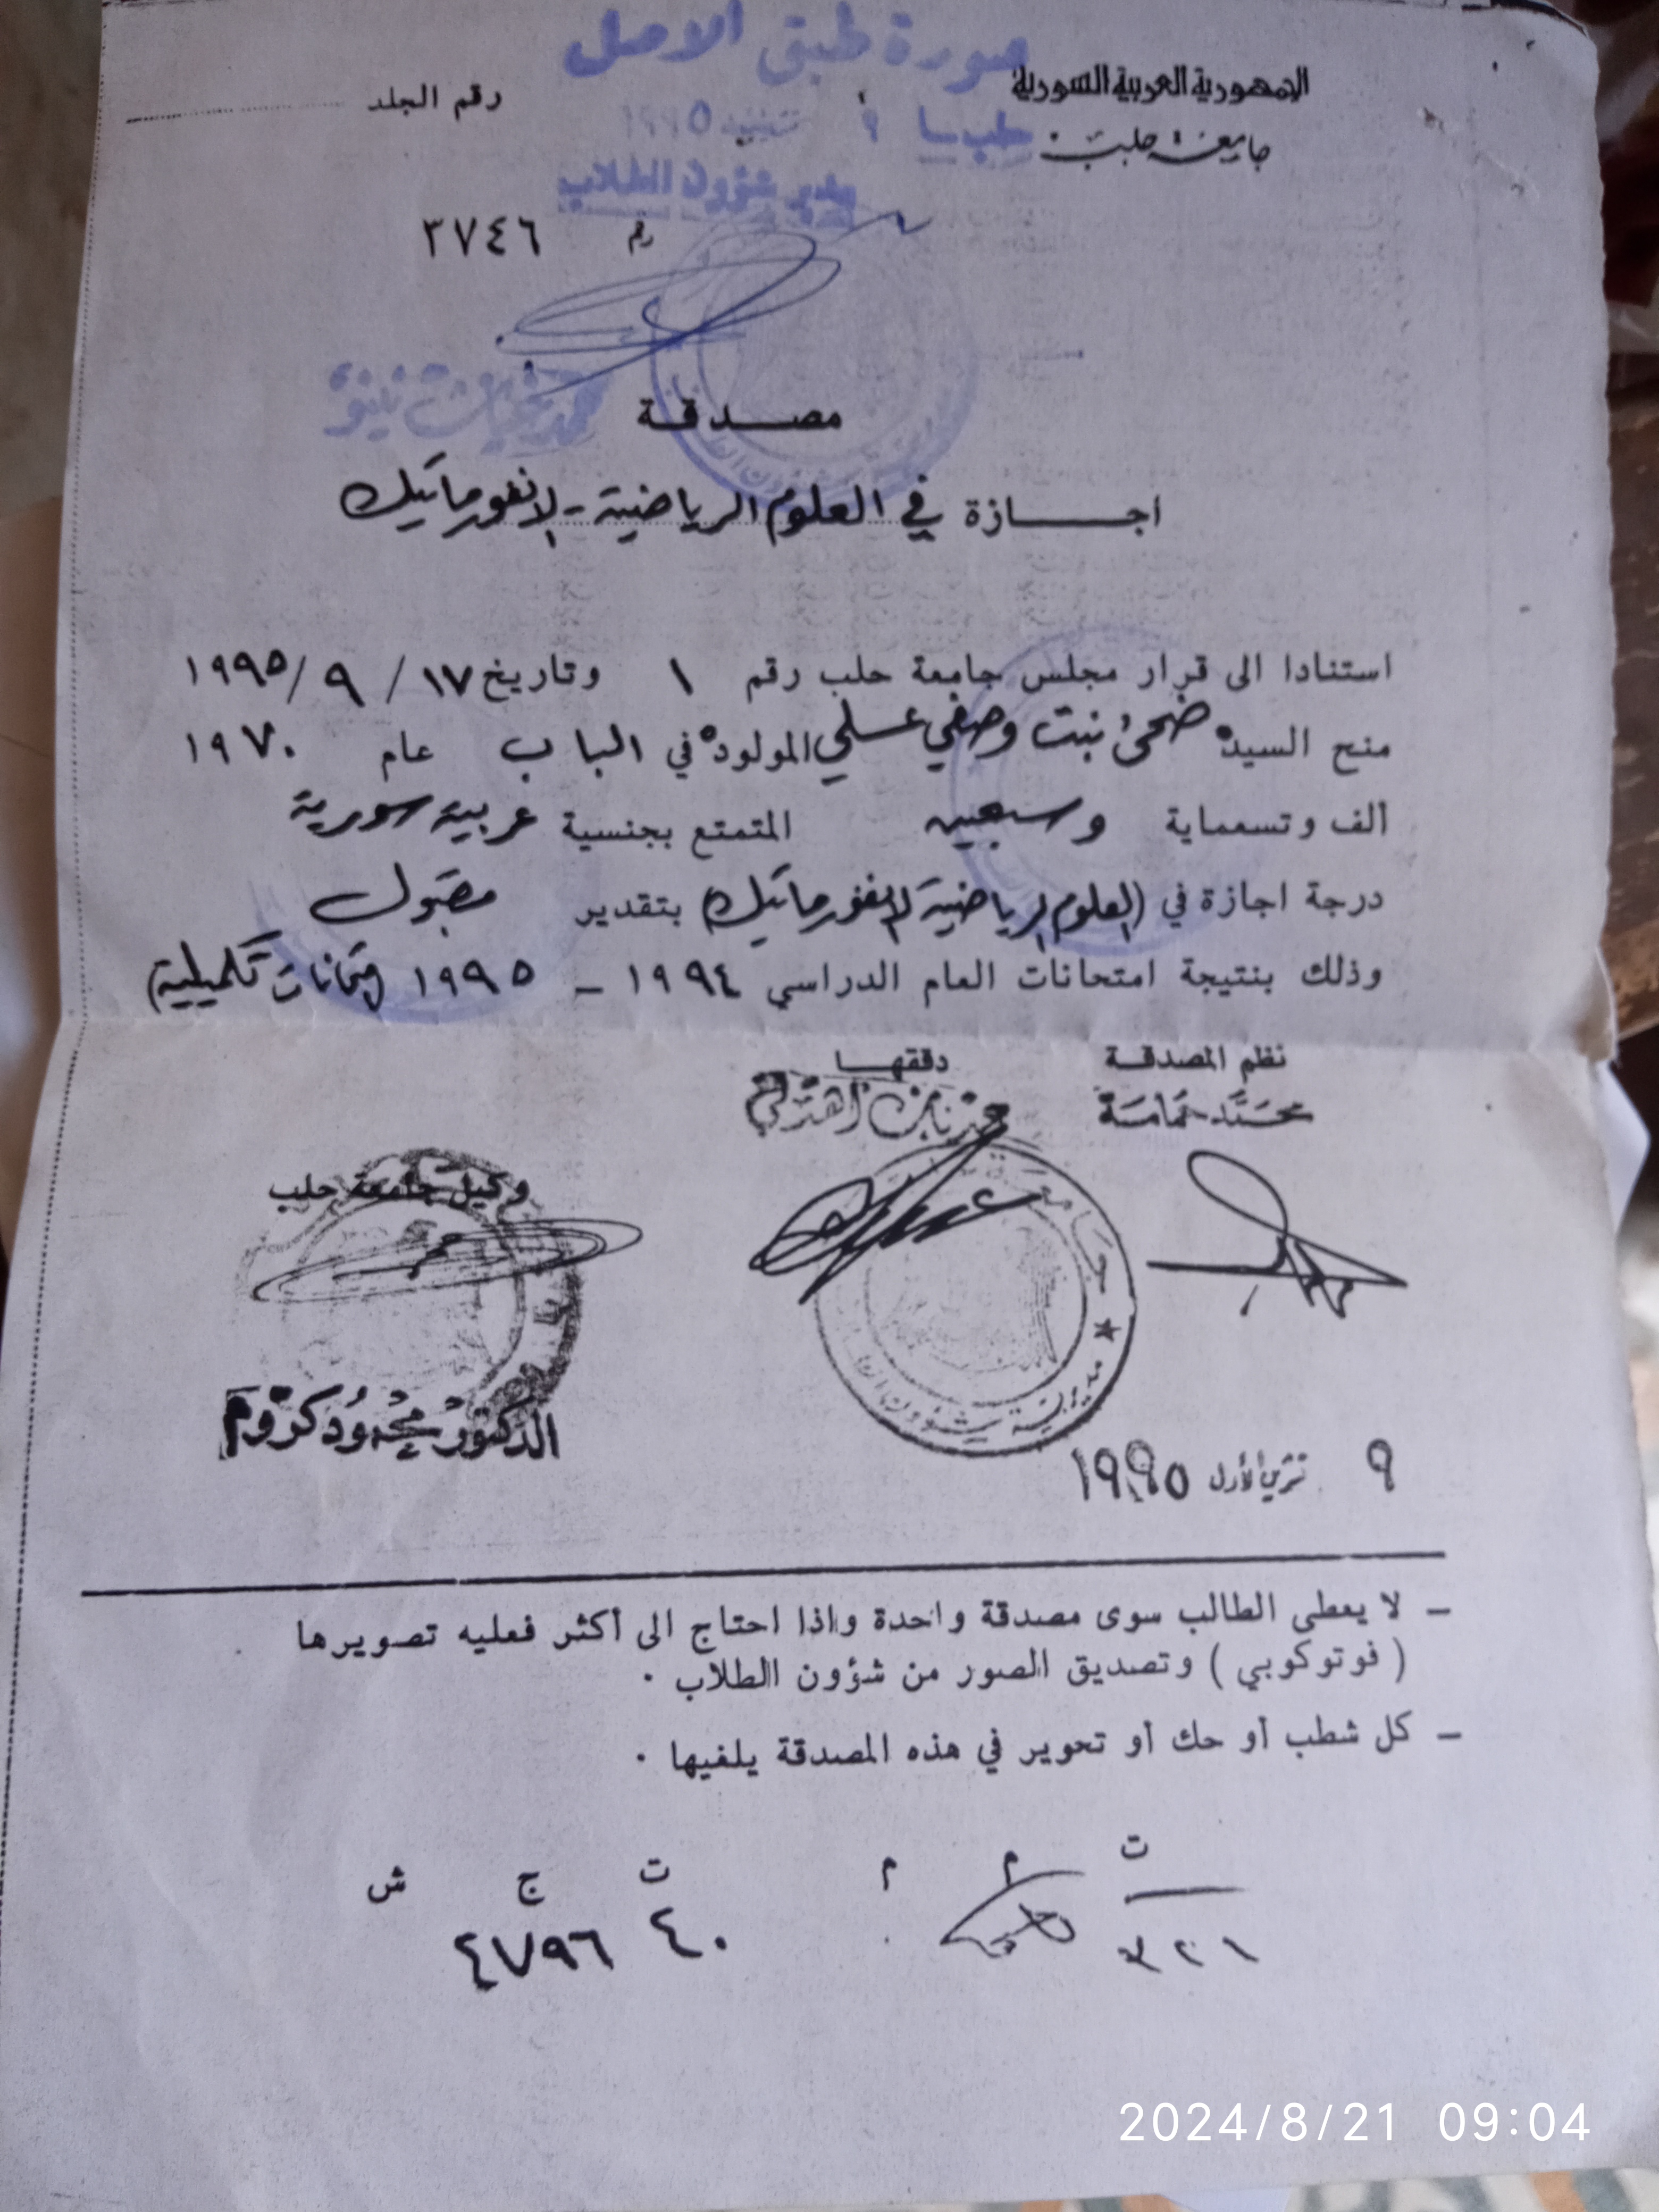 صورة طبق الاصل
الجمهورية العربية السورية
جامعة حلب
رقم الجلد
حلب ٩ ١٩٩٥
مدير شؤون الطلاب
رقم ٣٧٤٦
مصدقة
اجازة في العلوم الرياضية - لانفورماتيك
استنادا الى قرار مجلس جامعة حلب رقم ١ وتاريخ ١٧ / ٩ / ١٩٩٥
منح السيدة ضحى بنت وصفي عسلي المولودة في الباب عام ١٩٧٠
ألف وتسعماية وسبعين المتمتع بجنسية عربية سورية
درجة اجازة في (العلوم الرياضية لانفورماتيك) بتقدير مقبول
وذلك بنتيجة امتحانات العام الدراسي ١٩٩٤ – ١٩٩٥ تكميلية)
نظم المصدقة
دققها
محمد
وكيل جامعة حلب
جامعة
مديرية شؤون
الدكتور محمود كروم
٩ تشرين الأول ١٩٩٥
– لا يعطى الطالب سوى مصدقة واحدة واذا احتاج الى أكثر فعليه تصويرها
( فوتوكوبي ) وتصديق الصور من شؤون الطلاب .
– كل شطب أو حك أو تحوير في هذه المصدقة يلغيها .
ت م م ت ج ش
٤٠ ٤٧٩٦
2024/8/21 09:04